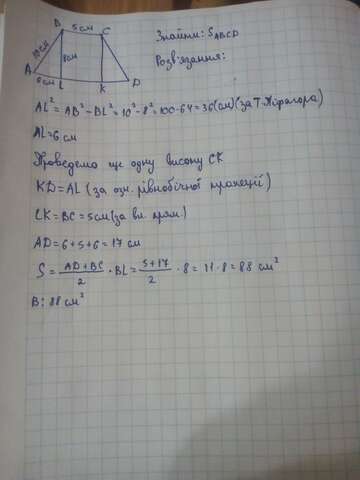 B 5см C
10см 8см
A 6см L K D
Знайти: SABCD
Розв'язання:
AL² = AB² - BL² = 10² - 8² = 100 - 64 = 36(см) (за Т. Піфагора)
AL = 6 см
Проведемо ще одну висоту CK
KD = AL (за озн. рівнобічної трапеції)
LK = BC = 5см (за вл. прям.)
AD = 6 + 5 + 6 = 17 см
S = AD + BC / 2 · BL = 5 + 17 / 2 · 8 = 11 · 8 = 88 см²
В: 88 см²